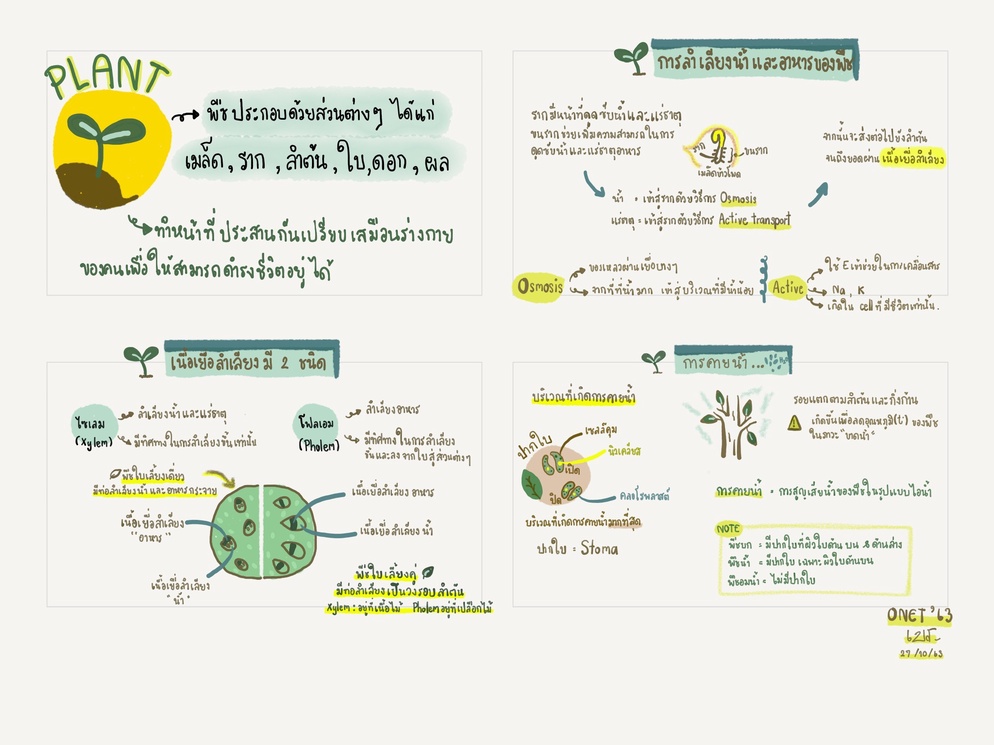 PLANT
พืชประกอบด้วยส่วนต่างๆ ได้แก่
เมล็ด, ราก, ลำต้น, ใบ, ดอก, ผล
ทำหน้าที่ประสานกันเปรียบเสมือนร่างกาย
ของคนเพื่อให้สามารถดำรงชีวิตอยู่ได้
การลำเลียงน้ำและอาหารของพืช
รากมีหน้าที่ดูดซับน้ำและแร่ธาตุ
ขนรากช่วยเพิ่มความสามารถในการ
ดูดซับน้ำและแร่ธาตุอาหาร
ราก
ขนราก
เมล็ดถั่วโหด
จากนั้นจะส่งต่อไปยังลำต้น
จนถึงยอดผ่านเนื้อเยื่อลำเลียง
น้ำ = เข้าสู่รากด้วยวิธีการ Osmosis
แร่ธาตุ = เข้าสู่รากด้วยวิธีการ Active transport
Osmosis
ของเหลวผ่านเยื่อบางๆ
จากที่ที่น้ำมาก เข้าสู่บริเวณที่มีน้ำน้อย
Active
ใช้ E เข้าช่วยในการเคลื่อนสาร
Na, K
เกิดใน cell ที่มีชีวิตเท่านั้น.
เนื้อเยื่อลำเลียงมี 2 ชนิด
ไซเลม
(Xylem)
ลำเลียงน้ำและแร่ธาตุ
มีทิศทางในการลำเลียงขึ้นเท่านั้น
โฟลเอม
(Pholem)
ลำเลียงอาหาร
มีทิศทางในการลำเลียง
ขึ้นและลงจากใบสู่ส่วนต่างๆ
พืชใบเลี้ยงเดี่ยว
มีท่อลำเลียงน้ำและอาหารกระจาย
เนื้อเยื่อลำเลียง
"อาหาร"
เนื้อเยื่อลำเลียง
"น้ำ"
เนื้อเยื่อลำเลียงอาหาร
เนื้อเยื่อลำเลียงน้ำ
พืชใบเลี้ยงคู่
มีท่อลำเลียงเป็นวงรอบลำต้น
Xylem : อยู่ที่เนื้อไม้ Pholem อยู่ที่เปลือกไม้
การคายน้ำ...
บริเวณที่เกิดการคายน้ำ
ปากใบ
เซลล์คุม
นิวเคลียส
เปิด
ปิด
คลอโรพลาสต์
บริเวณที่เกิดการคายน้ำมากที่สุด
ปากใบ = Stoma
รอยแตกตามลำต้นและกิ่งก้าน
เกิดขึ้นเพื่อลดอุณหภูมิ(t) ของพืช
ในสภาวะ "ขาดน้ำ"
การคายน้ำ = การสูญเสียน้ำของพืชในรูปแบบไอน้ำ
NOTE
พืชบก = มีปากใบที่ผิวใบด้านบน & ด้านล่าง
พืชน้ำ = มีปากใบเฉพาะผิวใบด้านบน
พืชจมน้ำ = ไม่มีปากใบ
ONET '63
27/10/63